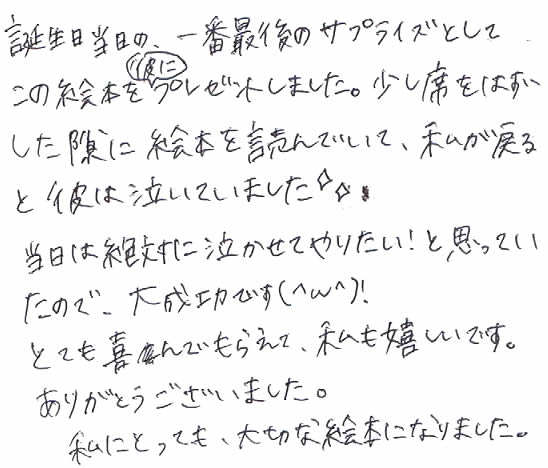 誕生日当日の、一番最後のサプライズとして
この絵本を彼にプレゼントしました。少し席をはずい
した隙に絵本を読んでいて、私が戻る
と彼は泣いていました☆☆
当日は絶対に泣かせてやりたい！と思ってい
たので、大成功です(^ω^)!
とても喜んでもらえて、私も嬉しいです。
ありがとうございました。
私にとっても、大切な絵本になりました。